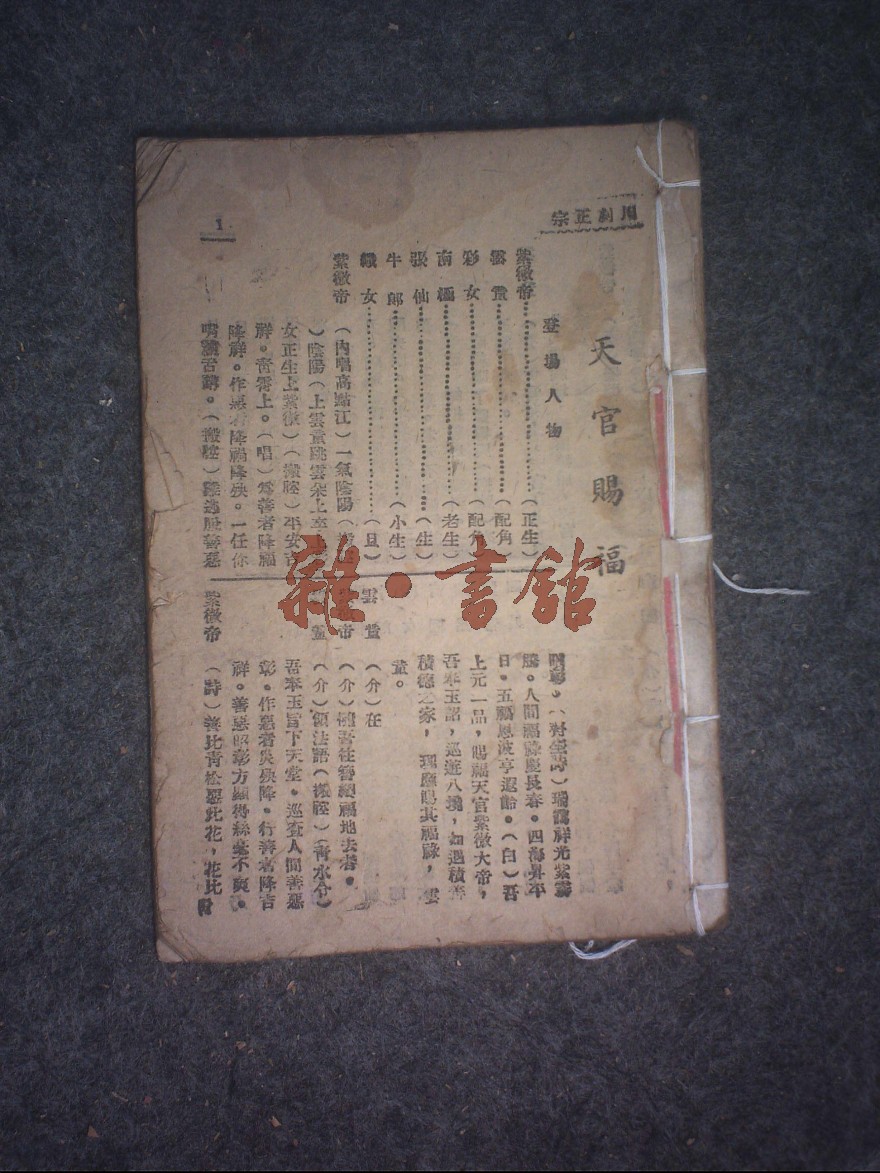 川劇正宗
天官賜福
登場人物
紫微帝（正生）
雲童（配角）
彩女（配角）
南極（老生）
張仙（生）
牛郎（小生）
織女（旦）
紫微帝
（內唱高點江）一氣陰陽（
）陰陽（上雲童跳雲朵上
女正生上紫微）（搬腔）平安吉
祥。青霄上。（唱）為善者降福
降祥。作惡者降禍降殃。一任你
（搬腔）善惡
（對坐詩）瑞靄祥光紫霧
騰。人間福祿慶長春。四海昇平
日。五福恩波亨遐齡。（白）吾
上元一品，賜福天官紫微大帝，
吾奉玉詔，巡遊八壤，如遇積善
積德之家，理應賜其福祿，雲
童。
雲童（介）在
（介）領法語（搬腔）（青水令）
吾奉玉旨下天堂。巡查人間善惡
彰。作惡者災殃降。行善者降吉
祥。善惡昭彰方顯得絲毫不爽。
紫微帝（詩）善比青松惡比花，花比
1
雜·書館